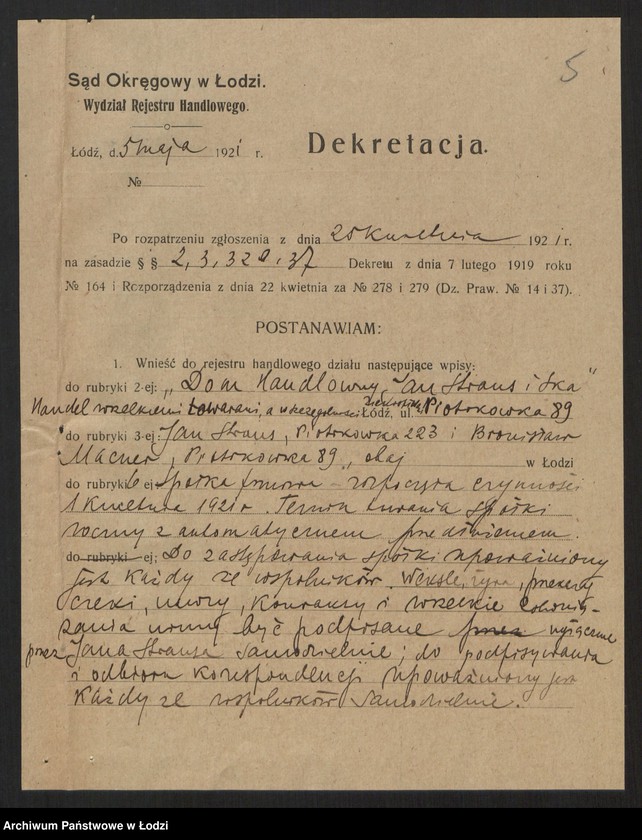 5
Sąd Okręgowy w Łodzi.
Wydział Rejestru Handlowego.
Łódź, d. 5 maja 1921 r.
Dekretacja.
№
Po rozpatrzeniu zgłoszenia z dnia 28 kwietnia 1921 r.
na zasadzie § § 2, 3, 32 i 37 Dekretu z dnia 7 lutego 1919 roku
№ 164 i Rozporządzenia z dnia 22 kwietnia za № 278 i 279 (Dz. Praw. № 14 i 37).
POSTANAWIAM:
1. Wnieść do rejestru handlowego działu następujące wpisy:
do rubryki 2-ej: „Dom Handlowy Jan Straus i Ska"
Handel wszelkiemi towarami, a w szczególności Łódź, ul. Piotrkowska 89
do rubryki 3-ej: Jan Straus, Piotrkowska 223 i Bronisław
Macner, Piotrkowska 89, obaj w Łodzi
do rubryki 6 ej Spółka firmowa – rozpoczęła czynności
1 kwietnia 1921 r. Termin trwania spółki
roczny z automatycznem przedłużeniem.
do rubryki ej; Do zastępowania spółki upoważniony
jest każdy ze wspólników. Weksle, żyra, przekazy
czeki, umowy, kontrakty i wszelkie zobowią-
zania winny być podpisane przez wyłącznie
przez Jana Strausa samodzielnie; do podpisywania
i odbioru korespondencji upoważniony jest
każdy ze wspólników samodzielnie.
Archiwum Państwowe w Łodzi